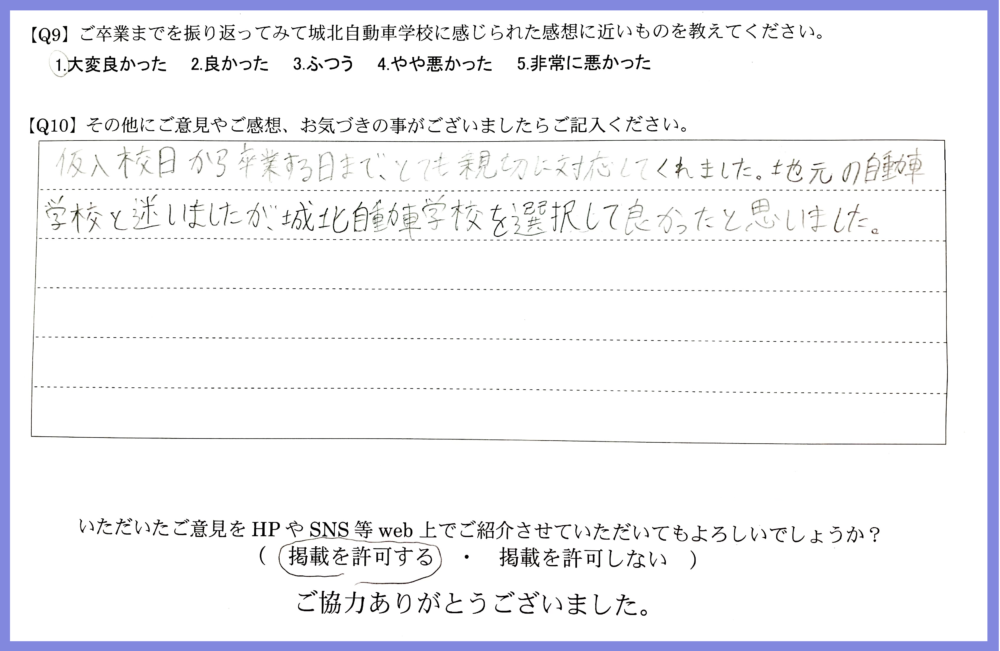 【Q9】ご卒業までを振り返ってみて城北自動車学校に感じられた感想に近いものを教えてください。
1.大変良かった 2.良かった 3.ふつう 4.やや悪かった 5.非常に悪かった
【Q10】その他にご意見やご感想、お気づきの事がございましたらご記入ください。
仮入校日から卒業する日まで、とても親切に対応してくれました。地元の自動車
学校と迷いましたが、城北自動車学校を選択して良かったと思いました。
いただいたご意見を HP や SNS 等 web 上でご紹介させていただいてもよろしいでしょうか？
（ 掲載を許可する ・ 掲載を許可しない ）
ご協力ありがとうございました。